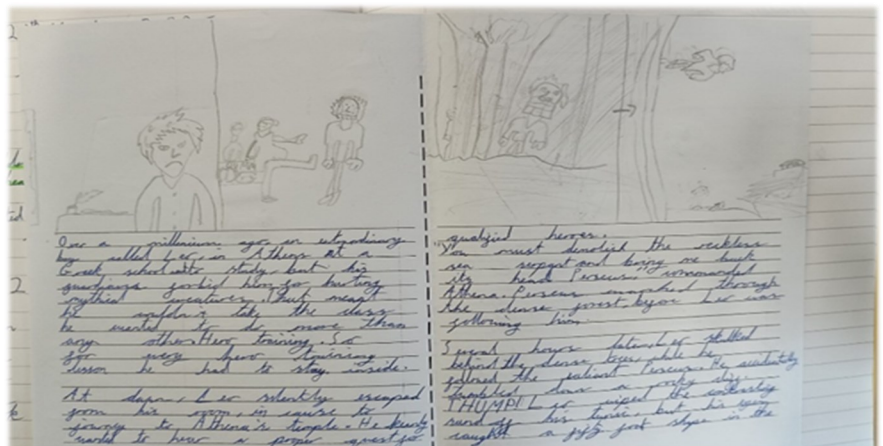 Over a millenium ago an extrordinary
boy called Leo, in Athens at a
Greek school to study, but his
guardians forbid him for hurting
mythical creatures. That meant
he couldn't take the class
he wanted to do more than
any other: Hero training. So
for every hero training
lesson he had to stay inside.
At dawn, Leo silently escaped
from his room, in cause to
journey to Athena's temple. He
wanted to hear a proper quest for
qualified heroes.
"You must demolish the reckless
sea serpent and bring me back
its head Perseus," commanded
Athena. Perseus marched through
the dense forest, Leo was
following him.
Several hours later, Leo stalked
behind the dense trees, while he
followed the patient Perseus. He accidentally
tumbled down a rocky
THUMP! Leo wiped the
sand off his tunic, but his eyes
caught a fifty foot shape in the